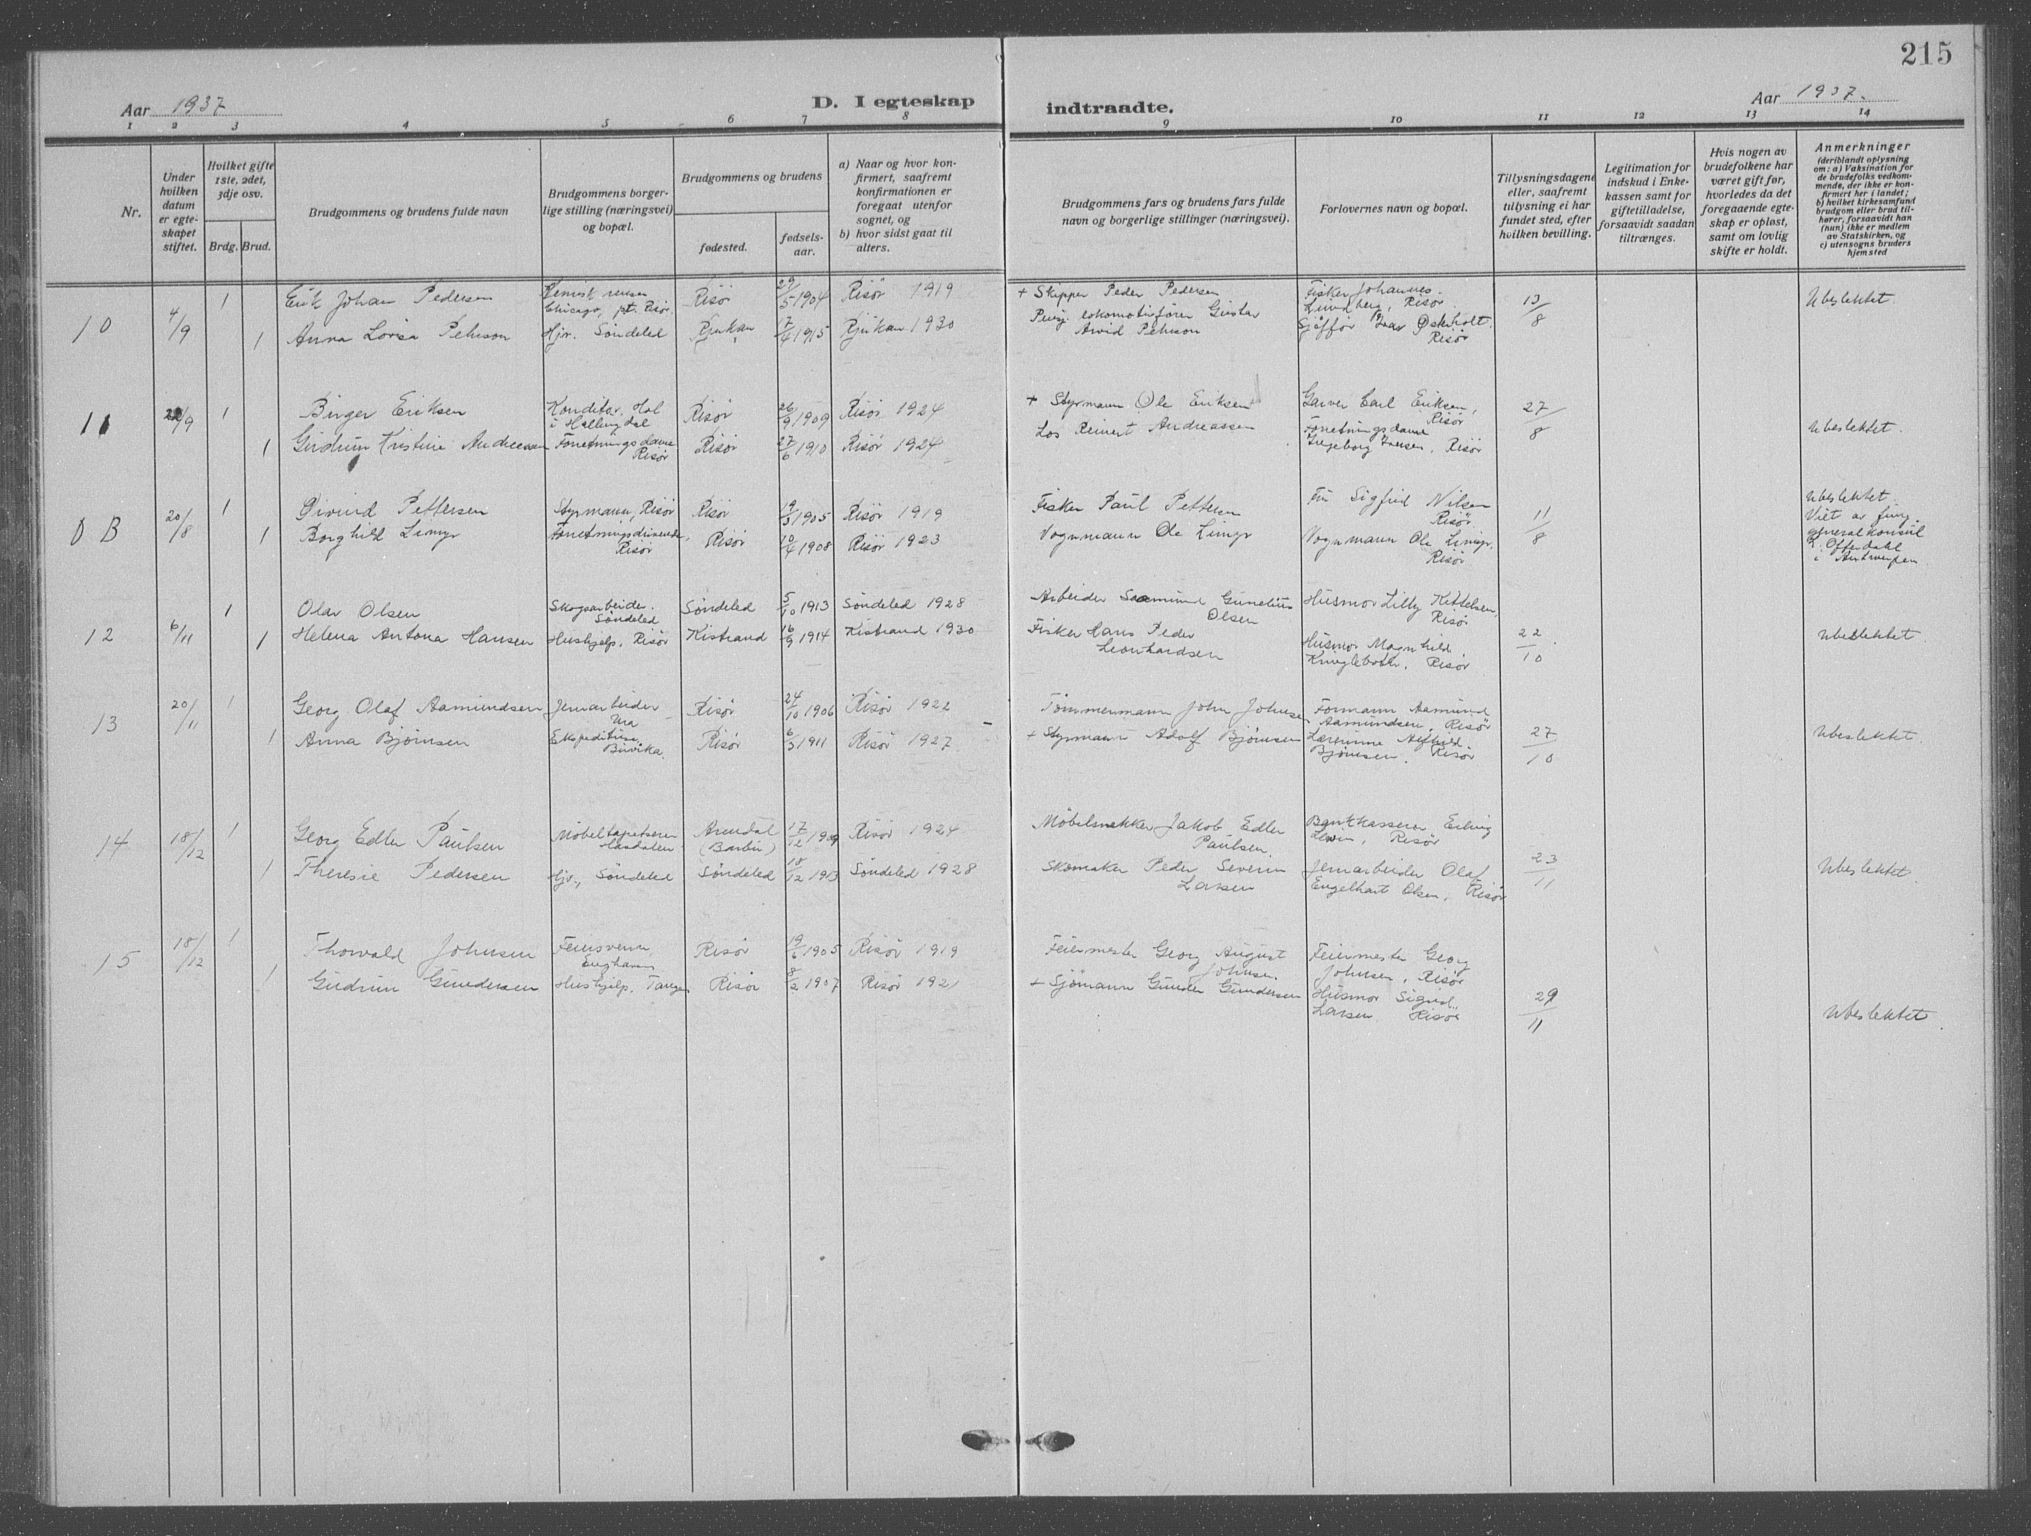 215
Aar 1937
D. I egteskap indtraadte.
Aar 1937.
1 2 3 4 5 6 7 8 9 10 11 12 13 14
Nr.
Under hvilken datum er egte- skapet stiftet.
Hvilket gifte 1ste, 2det, 3dje osv.
Brdg. Brud.
Brudgommens og brudens fulde navn
Brudgommens borger- lige stilling (næringsvei) og bopæl.
Brudgommens og brudens
fødested.
fødsels- aar.
a) Naar og hvor kon- firmert, saafremt konfirmationen er foregaat utenfor sognet, og
b) hvor sidst gaat til alters.
Brudgommens fars og brudens fars fulde navn og borgerlige stillinger (næringsvei).
Forlovernes navn og bopæl.
Tillysningsdagene eller, saafremt tillysning ei har fundet sted, efter hvilken bevilling.
Legitimation for indskud i Enke- kassen samt for giftetilladelse, forsaavidt saadan tiltrænges.
Hvis nogen av brudefolkene har været gift før, hvorledes da det foregaaende egte- skap er opløst, samt om lovlig skifte er holdt.
Anmerkninger
(deriblandt oplysning om: a) Vaksination for de brudefolks vedkom- mende, der ikke er kon- firmert her i landet;
b) hvilket kirkesamfund brudgom eller brud til- hører, forsaavidt han (hun) ikke er medlem av Statskirken, og
c) utensogns bruders hjemsted
10 4/9 1 Erik Johan Pedersen Chicago, pt. Risør Risør 29/5 1904 Risør 1919 + Skipper Peder Pedersen Fisker Johannes Lundberg, Risør 13/8 Ubeslektet.
1 Anna Lovisa Pehrson Hjv. Søndeled Rjukan 17/4 1915 Rjukan 1930 lokomotivfører Gustav Arvid Pehrson Risør
11 /9 1 Birger Eriksen Konditor, Hol i Hallingdal Risør 26/9 1909 Risør 1924 + Styrmann Ole Eriksen Garver Carl Eriksen, Risør 27/8 Ubeslektet.
1 Gudrun Kristine Andreassen Forretningsdame Risør Risør 27/6 1910 Risør 1924 Los Reinert Andreassen Forretningsdame Ingeborg Jensen, Risør
0 B 20/8 1 Øivind Pettersen Styrmann, Risør Risør 19/3 1905 Risør 1919 Fisker Paul Pettersen Fru Sigfrid Nilsen Risør 11/8 Ubeslektet. Viet av fung generalkonsul Offerdahl i Antwerpen
1 Borghild Limyr Risør Risør 10/4 1908 Risør 1923 Vognmann Ole Limyr Vognmann Ole Limyr, Risør
12 6/11 1 Olav Olsen Skogsarbeider. Søndeled Søndeled 5/10 1913 Søndeled 1928 Arbeider Gunelius Olsen Husmor Lilly Kittelsen, Risør 22/10 Ubeslektet.
1 Helena Antona Hansen Hushjelp, Risør Kistrand 16/9 1914 Kistrand 1930 Fisker Hans Peder Leonhardsen Husmor Magnhild Risør
13 20/11 1 Georg Olaf Aamundsen Jernarbeider Risør 24/10 1906 Risør 1922 Tømmermann John Johnsen Formann Aamund Aamundsen, Risør 27/10 Ubeslektet.
1 Anna Bjørnsen Ekspeditrise, Buvika Risør 6/3 1911 Risør 1927 + Styrmann Adolf Bjørnsen Lærerinne Bjørnsen, Risør
14 18/12 1 Georg Edler Paulsen Møbeltapetserer Hasdalen Arendal (Barbu) 17/12 1909 Risør 1924 Møbelsnekker Jakob Edler Paulsen Bankkasserer Erling Lewin, Risør 23/11 Ubeslektet
1 Therese Pedersen Hjv., Søndeled Søndeled 18/12 1913 Søndeled 1928 Skomaker Peder Severin Larsen Jernarbeider Olaf Engelhart Olsen, Risør
15 18/12 1 Thorvald Johnsen Feiersvenn Enghaven Risør 19/6 1905 Risør 1919 Feiermester Georg August Johnsen. Feiermester Georg Johnsen, Risør 29/11 Ubeslektet
1 Gudrun Gundersen Hushjelp, Tangen Risør 8/2 1907 Risør 1921 + Sjømann Gunder Gundersen Husmor Sigrid Larsen Risør